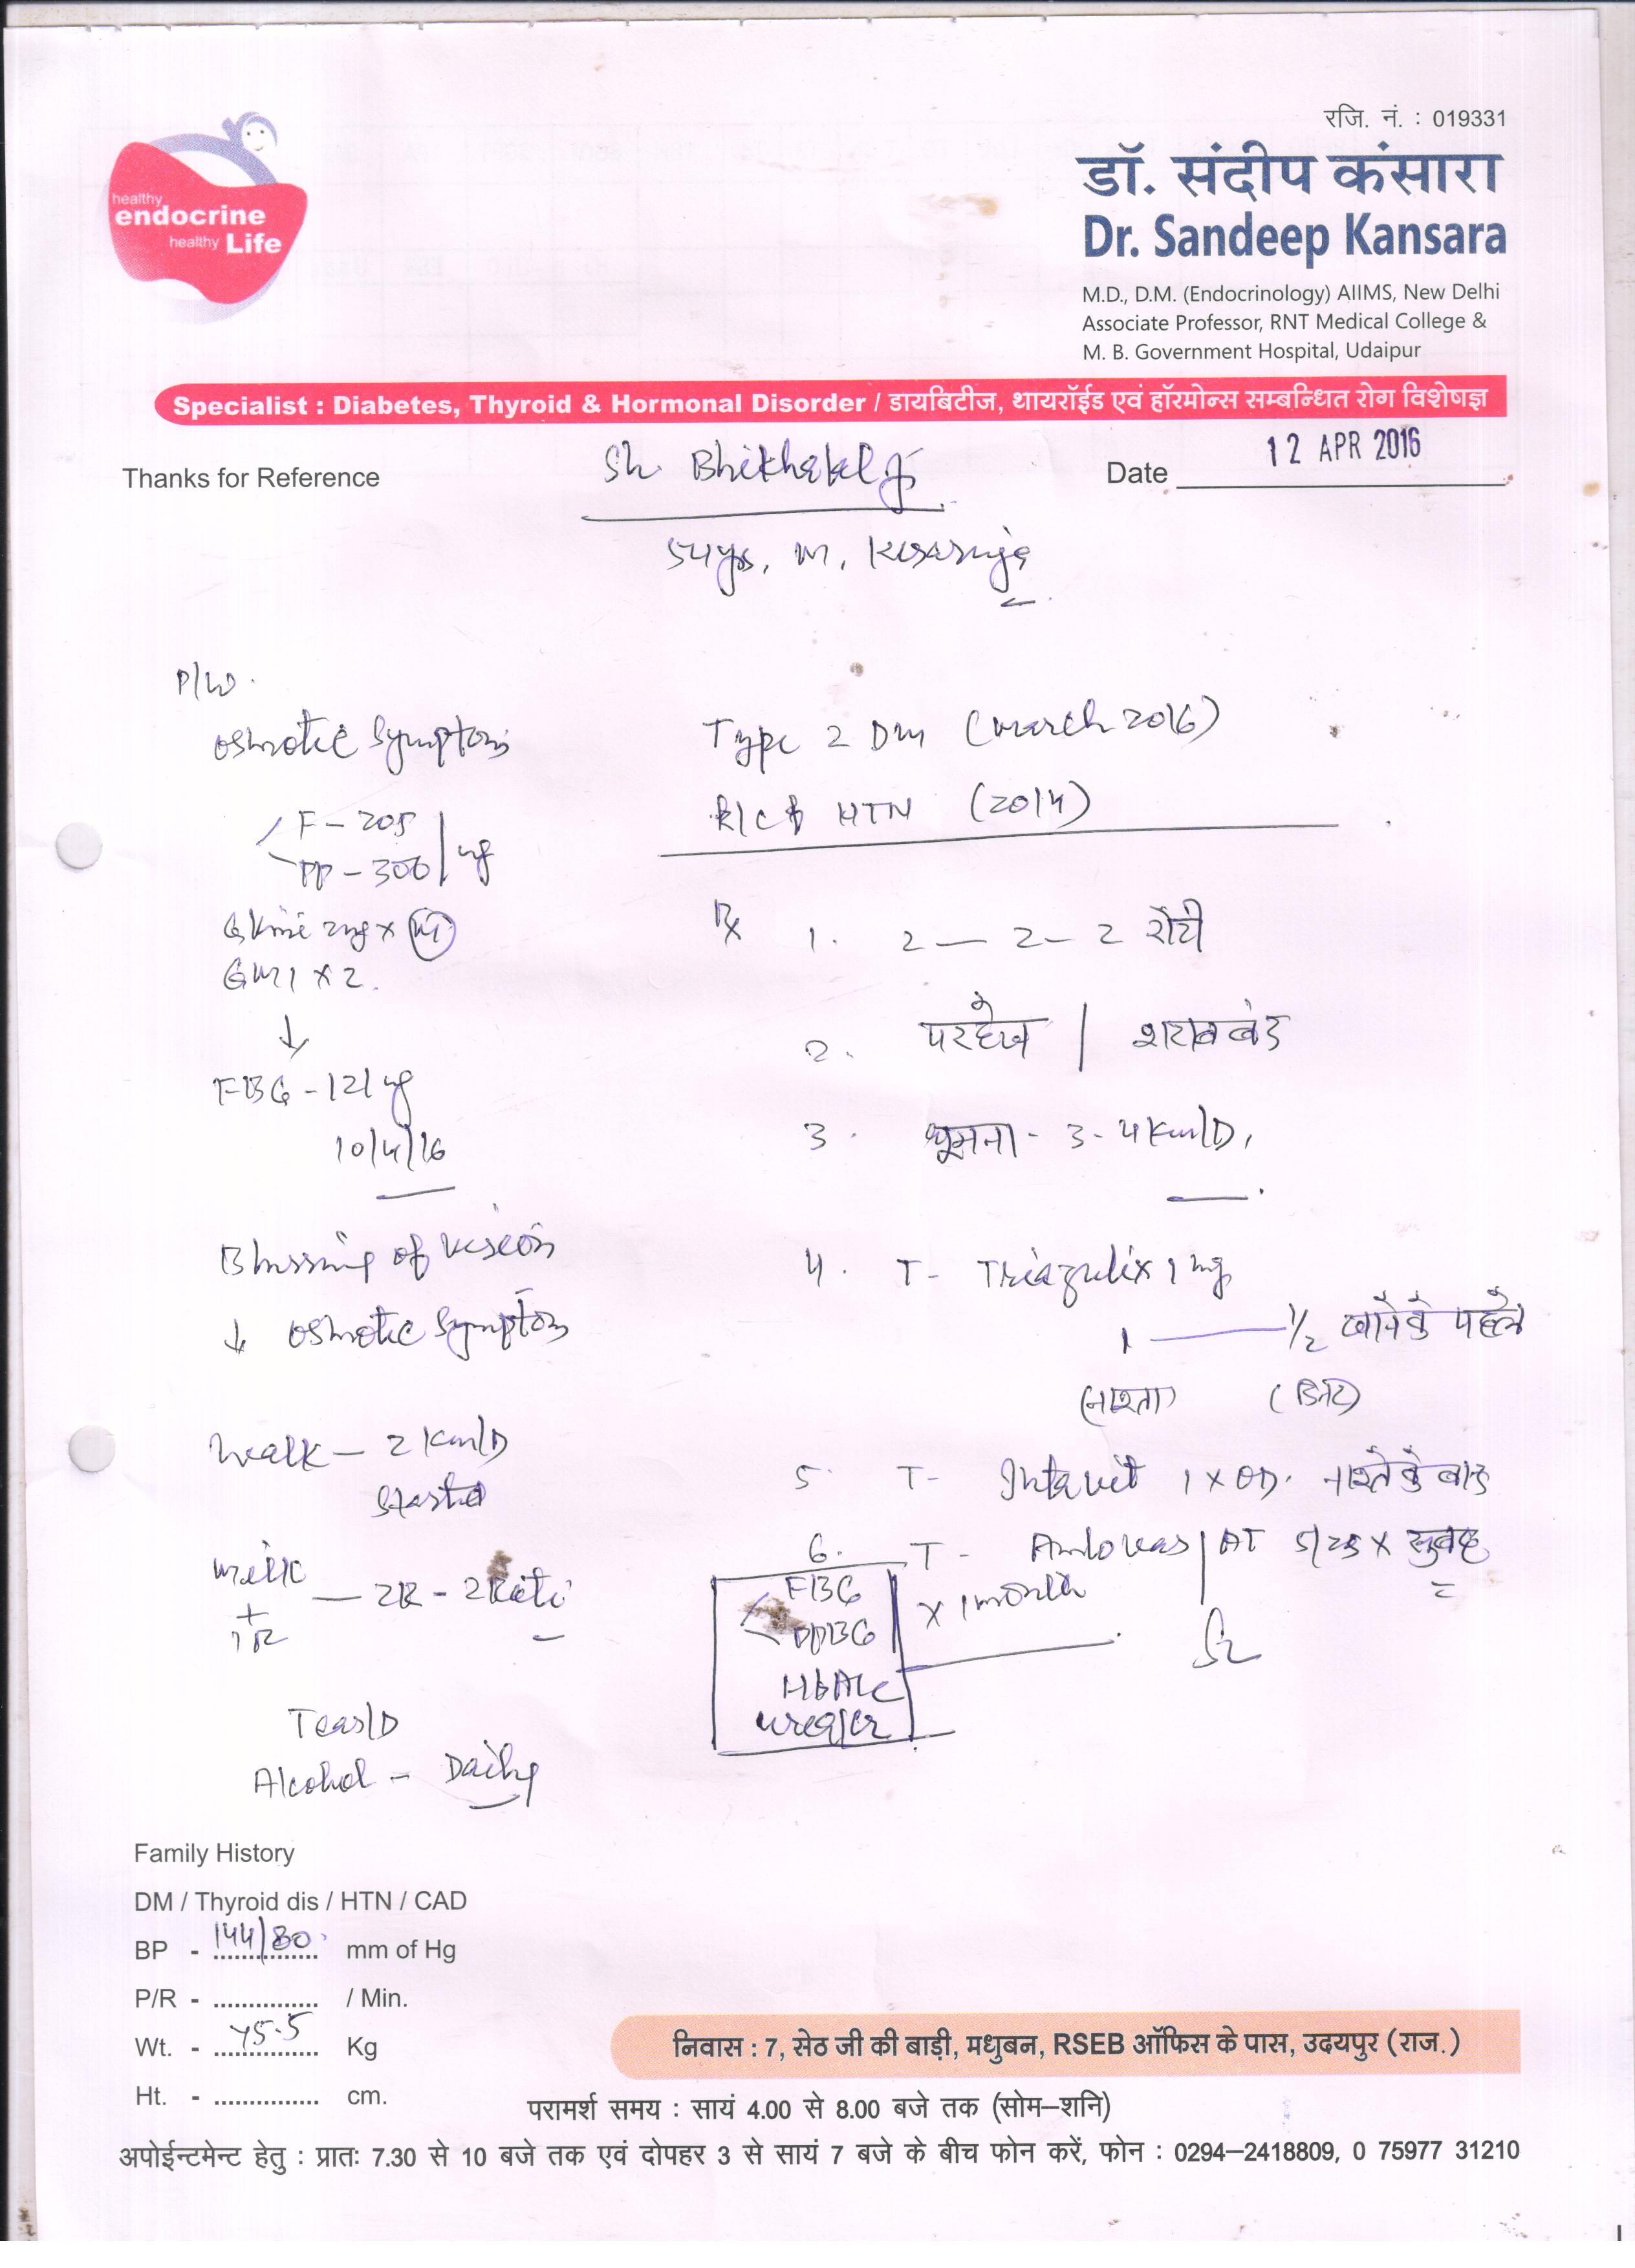 रजि. नं. : 019331
healthy
endocrine
healthy Life
डॉ. संदीप कंसारा
Dr. Sandeep Kansara
M.D., D.M. (Endocrinology) AIIMS, New Delhi
Associate Professor, RNT Medical College &
M. B. Government Hospital, Udaipur
Specialist : Diabetes, Thyroid & Hormonal Disorder / डायबिटीज, थायरॉईड एवं हॉरमोन्स सम्बन्धित रोग विशेषज्ञ
Thanks for Reference
Sh. Date 12 APR 2016
54 yrs, M,
P/W
Osmotic Symptoms
F - 205
PP - 300 | mg
2mg x
GM1 x 2
↓
FBG - 121 mg
10/4/16
Blurring of vision
↓ Osmotic Symptoms
Walk - 2 Km/D
Started
Milk — 2R - 2 Roti
+
1R
Tea/D
Alcohol - Daily
Type 2 DM (March 2016)
HTN (2014)
Rx 1. 2 — 2 - 2 रोटी
2. परहेज | शराब बंद
3. घूमना - 3 - 4 Km/D,
4. T- Triazulix 1 mg
1 —— 1/2 खाने के पहले
(नाश्ता) (डिनर)
5. T- Intavit 1 x OD. नाश्ते के बाद
6. T- Amlovas AT 5/25 x सुबह
FBG
PPBG
x 1 month
HbA1c
urea/cr
Family History
DM / Thyroid dis / HTN / CAD
BP - 144/80 mm of Hg
P/R - ............... / Min.
Wt. - 75.5 Kg
Ht. - ............... cm.
निवास : 7, सेठ जी की बाड़ी, मधुबन, RSEB ऑफिस के पास, उदयपुर (राज.)
परामर्श समय : सायं 4.00 से 8.00 बजे तक (सोम–शनि)
अपोईन्टमेन्ट हेतु : प्रातः 7.30 से 10 बजे तक एवं दोपहर 3 से सायं 7 बजे के बीच फोन करें, फोन : 0294–2418809, 0 75977 31210